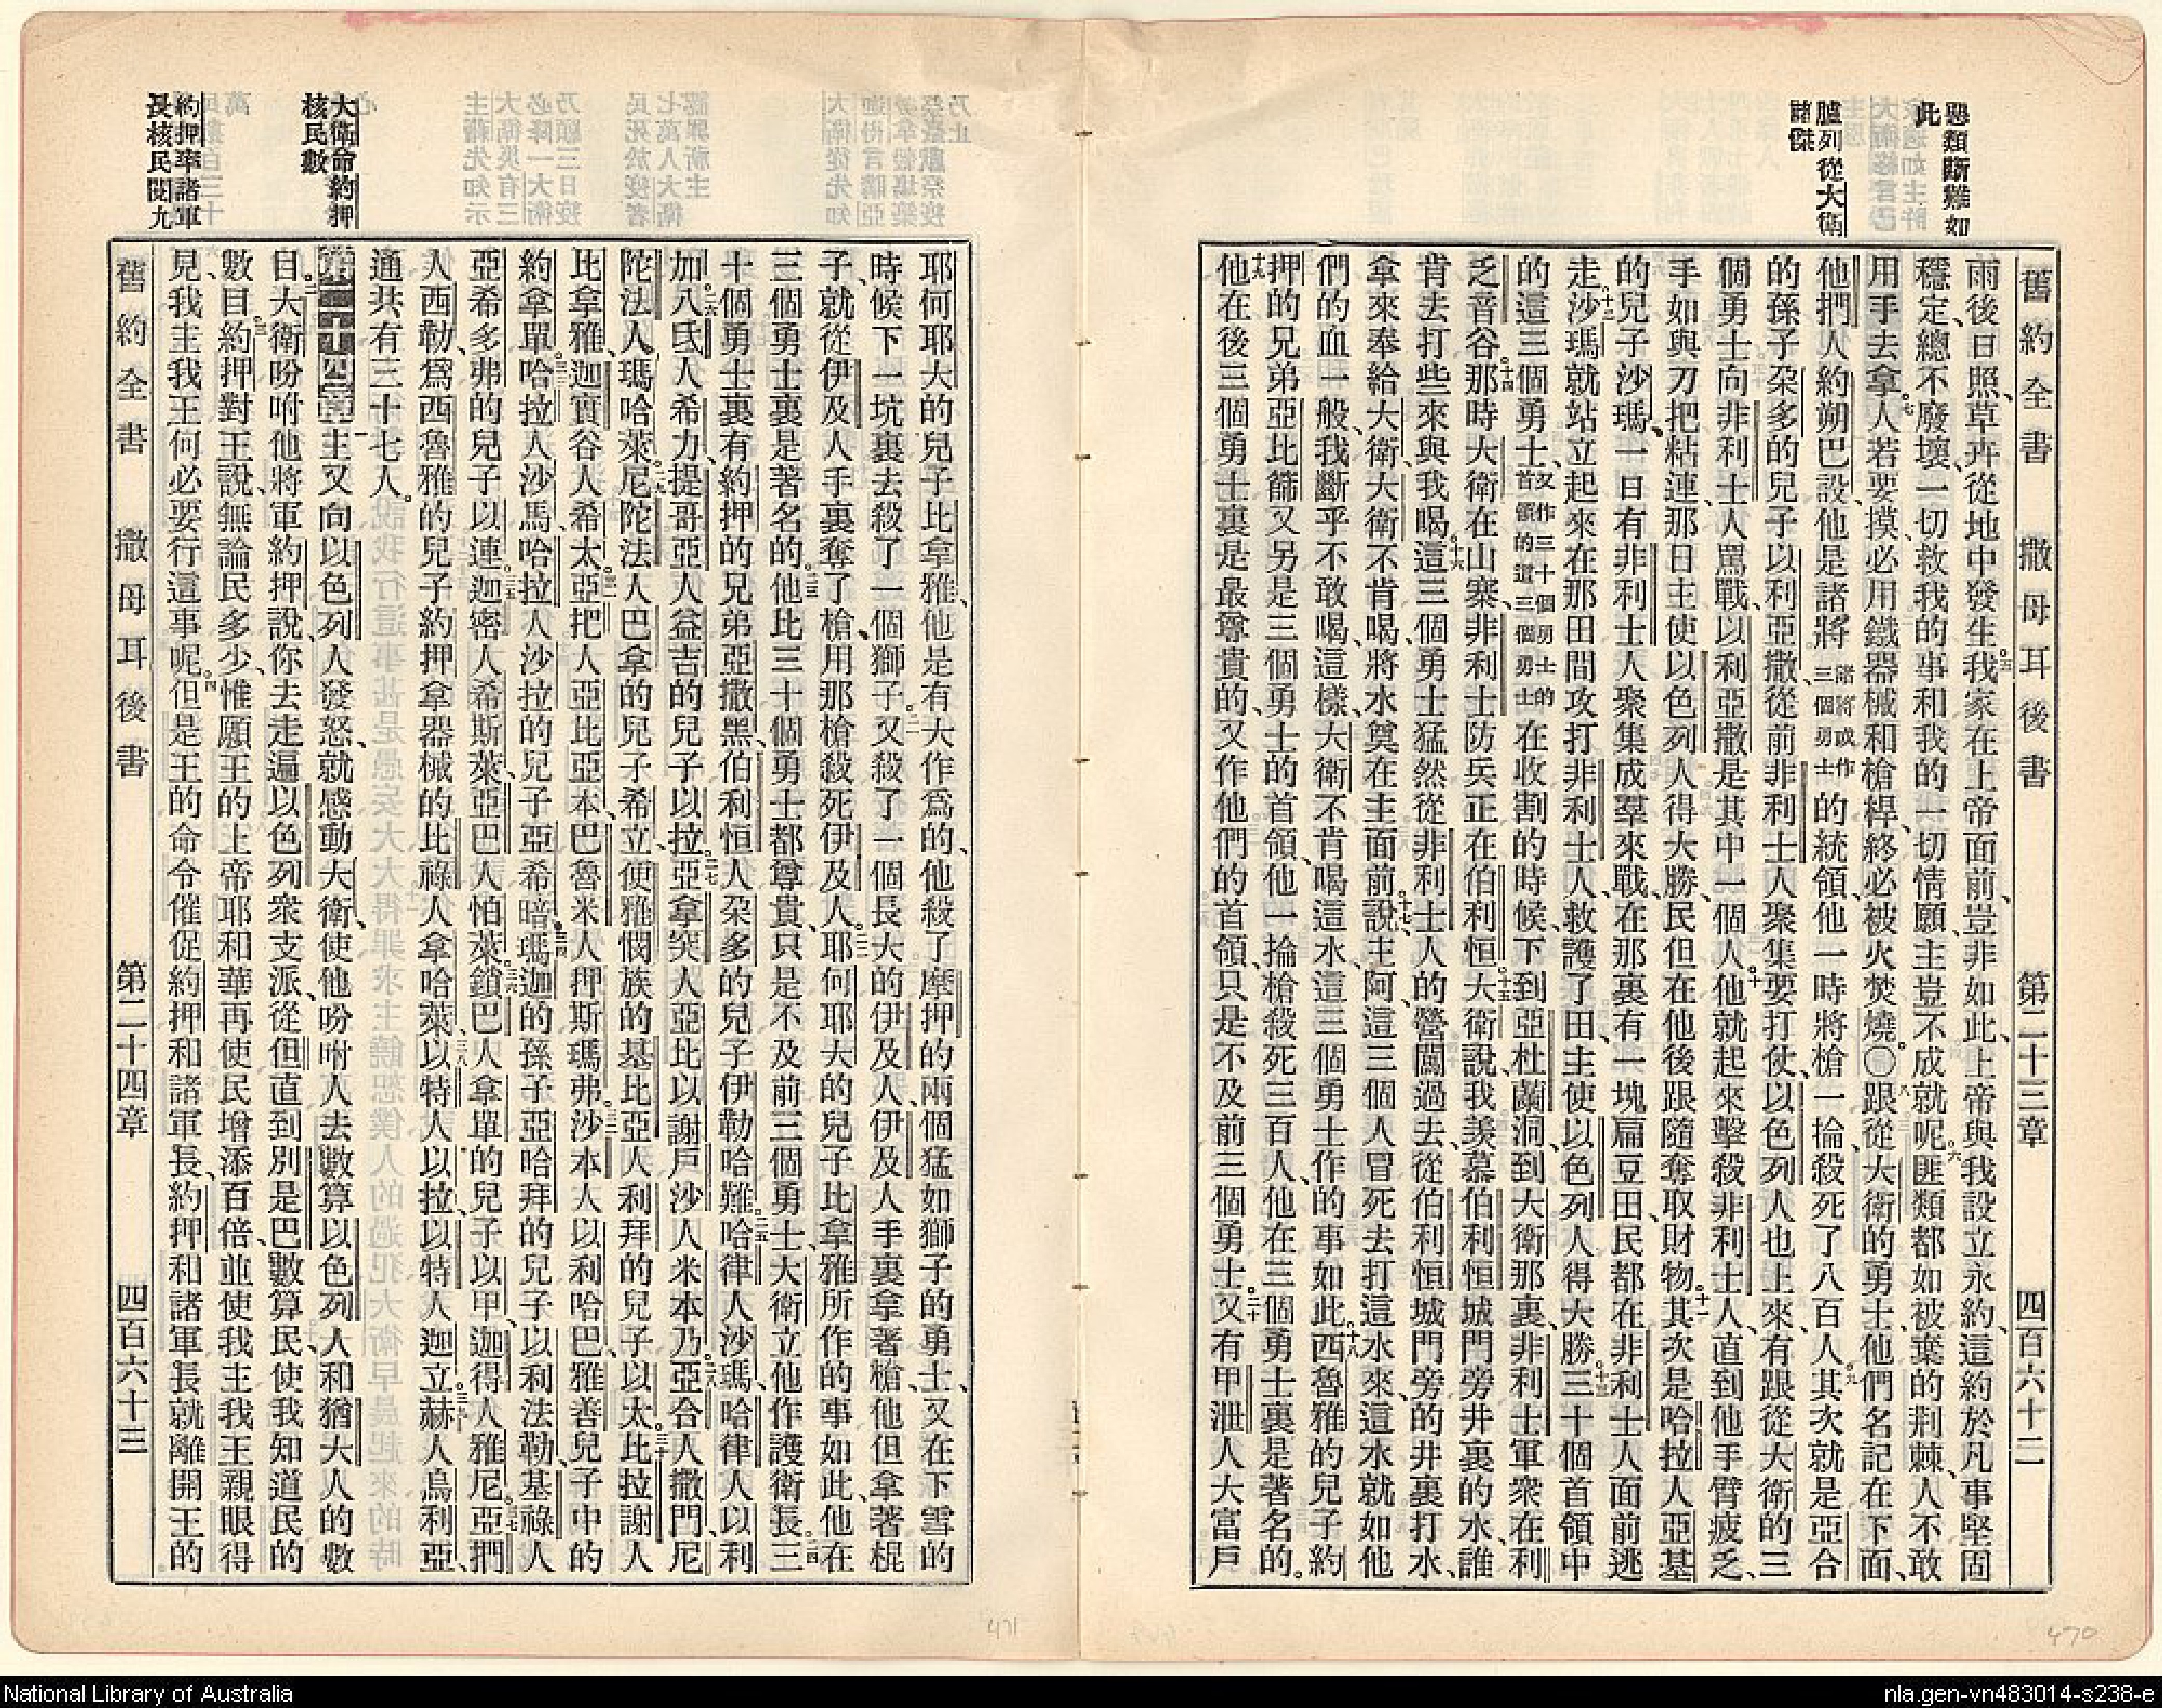 惡類斷難如
此
臚列從大衛
諸傑
舊約全書 撒母耳後書 第二十三章 四百六十二
雨後日照、草卉從地中發生。五我家在上帝面前、豈非如此、上帝與我設立永約、這約於凡事堅固
穩定、總不廢壞、一切救我的事和我的一切情願、主豈不成就呢。六匪類都如被棄的荆棘、人不敢
用手去拿。七人若要摸、必用鐵器械和槍桿、終必被火焚燒。〇八跟從大衛的勇士、他們名記在下面、
他捫人約朔巴設、他是諸將諸將或作三個勇士的統領、他一時將槍一掄、殺死了八百人。九其次就是亞合
的孫子朶多的兒子以利亞撒、從前非利士人聚集要打仗、以色列人也上來、有跟從大衛的三
個勇士向非利士人罵戰、以利亞撒是其中一個人。十他就起來擊殺非利士人、直到他手臂疲乏、
手如與刀把粘連、那日主使以色列人得大勝、民但在他後跟隨奪取財物。十一其次是哈拉人亞基
的兒子沙瑪、一日有非利士人聚集成羣來戰、在那裏有一塊扁豆田、民都在非利士人面前逃
走。十二沙瑪就站立起來在那田間攻打非利士人、救護了田、主使以色列人得大勝。十三三十個首領中
的這三個勇士、又作三十個勇士的首領的這三個勇士在收割的時候、下到亞杜蘭洞、到大衛那裏、非利士軍衆在利
乏音谷。十四那時大衛在山寨、非利士防兵正在伯利恒。十五大衛說、我羨慕伯利恒城門旁井裏的水、誰
肯去打些來與我喝。十六這三個勇士猛然從非利士人的營闖過去、從伯利恒城門旁的井裏打水、
拿來奉給大衛、大衛不肯喝、將水奠在主面前。十七說、主阿、這三個人冒死去打這水來、這水就如他
們的血一般、我斷乎不敢喝、這樣、大衛不肯喝這水、這三個勇士作的事如此。十八西魯雅的兒子約
押的兄弟亞比篩又另是三個勇士的首領、他一掄槍殺死三百人、他在三個勇士裏是著名的。
十九他在後三個勇士裏是最尊貴的、又作他們的首領、只是不及前三個勇士。二十又有甲泄人大富戶
耶何耶大的兒子比拿雅、他是有大作爲的、他殺了摩押的兩個猛如獅子的勇士、又在下雪的
時候下一坑裏去殺了一個獅子。二一又殺了一個長大的伊及人、伊及人手裏拿著槍、他但拿著棍
子、就從伊及人手裏奪了槍、用那槍殺死伊及人。二二耶何耶大的兒子比拿雅所作的事如此、他在
三個勇士裏是著名的。二三他比三十個勇士都尊貴、只是不及前三個勇士、大衛立他作護衛長。二四三
十個勇士裏有約押的兄弟亞撒黑、伯利恒人朶多的兒子伊勒哈難。二五哈律人沙瑪、哈律人以利
加。二六八氐人希力、提哥亞人益吉的兒子以拉。二七亞拿突人亞比以謝、戶沙人米本乃。二八亞合人撒們、尼
陀法人瑪哈萊。二九尼陀法人巴拿的兒子希立、便雅憫族的基比亞人利拜的兒子以太。三十比拉謝人
比拿雅、迦實谷人希太。三一亞把人亞比亞本、巴魯米人押斯瑪弗。三二沙本人以利哈巴、雅善兒子中的
約拿單。三三哈拉人沙馬、哈拉人沙拉的兒子亞希暗。三四瑪迦的孫子亞哈拜的兒子以利法勒、基祿人
亞希多弗的兒子以連。三五迦密人希斯萊、亞巴人怕萊。三六鎖巴人拿單的兒子以甲、迦得人雅尼。三七亞捫
人西勒、爲西魯雅的兒子約押拿器械的比祿人拿哈萊。三八以特人以拉、以特人迦立。三九赫人烏利亞、
通共有三十七人。
第二十四章 一主又向以色列人發怒、就感動大衛、使他吩咐人去數算以色列人和猶大人的數
目。二大衛吩咐他將軍約押說、你去走遍以色列衆支派、從但直到別是巴、數算民、使我知道民的
數目。三約押對王說、無論民多少、惟願王的上帝耶和華再使民增添百倍、並使我主我王親眼得
見、我主我王何必要行這事呢。四但是王的命令催促約押和諸軍長、約押和諸軍長就離開王的
舊約全書 撒母耳後書 第二十四章 四百六十三
大衛命約押
核民數
約押率諸軍
長核民閱九
471
470
National Library of Australia
nla.gen-vn483014-s238-e